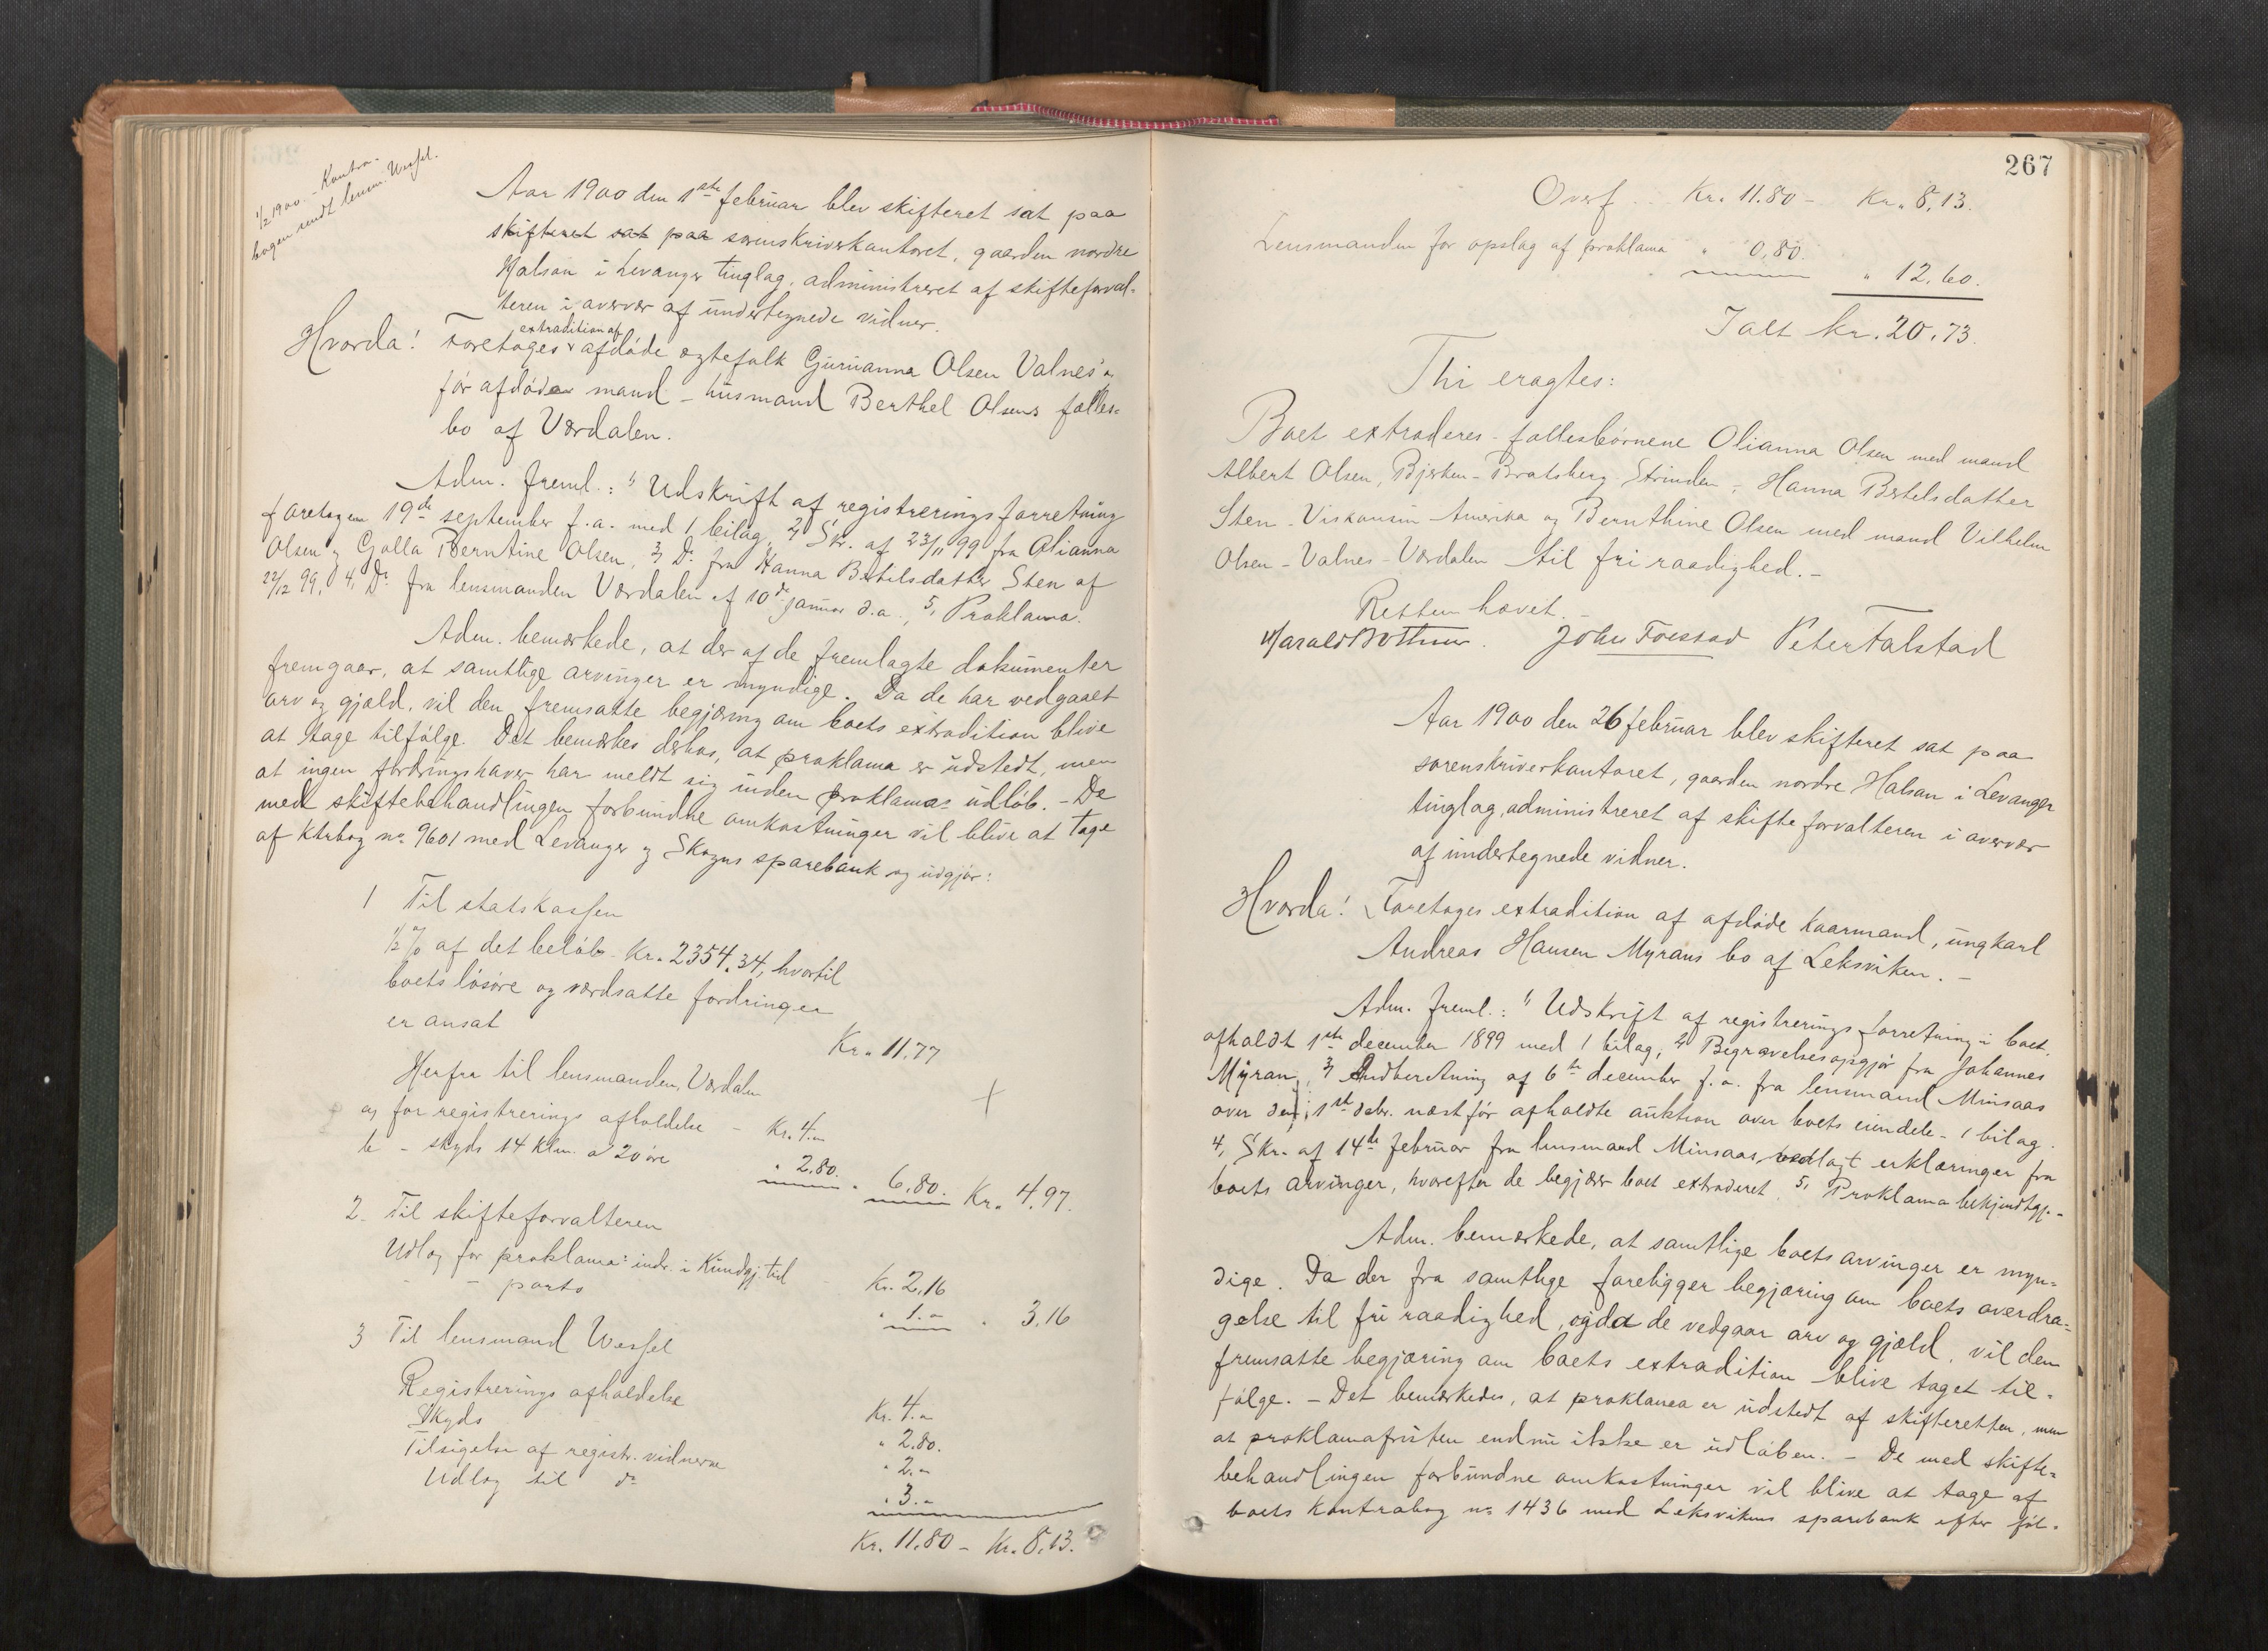 1/2 1900. - Kontra-
bogen sendt lensm. Wessel.
Aar 1900 den 1ste februar blev skifteret sat paa
skifteret sat paa sorenskriverkontoret, gaarden nordre
Halsan i Levanger tinglag, administreret af skifteforval-
teren i overvær af undertegnede vidner.
Hvorda! Foretoges extradition af afdøde egtefolk Gurianna Olsen Valnes's
før afdøde mand - husmand Berthel Olsens fælles-
bo af Værdalen.
Adm. freml.: 1, Udskrift af registreringsforretning
foretagen 19de september f.a. med 1 bilag, 2, Skr. af 23/11 99 fra Olianna
Olsen og Golla Berntine Olsen, 3, Do fra Hanna Bertelsdatter Sten af
22/12 99, 4, Do fra lensmanden Værdalen af 10de januar d.a., 5, Proklama.
Adm. bemærkede, at der af de fremlagte dokumenter
fremgaar, at samtlige arvinger er myndige. Da de har vedgaaet
arv og gjæld, vil den fremsatte begjæring om boets extradition blive
at tage tilfølge. Det bemærkes derhos, at proklama er udstedt, men
at ingen fordringshaver har meldt sig inden proklamas udløb. - De
med skiftebehandlingen forbundne omkostninger vil blive at tage
af ktrbog no 9601 med Levanger og Skogns sparebank og udgjør:
1 Til statskassen
1/2 % af det beløb - Kr. 2354.34, hvortil
boets løsøre og værdsatte fordringer
er ansat Kr. 11.77
Herfra til lensmanden, Værdalen
a, for registrerings afholdelse - Kr. 4.-
b - skyds 14 klm. a 20 øre " 2.80. " 6.80. Kr. 4.97.
2. Til skifteforvalteren
Udlæg for proklama: indr. i Kundgj. tid Kr. 2.16
- - porto " 1.- " 3.16
3 Til lensmand Wessel
Registrerings afholdelse Kr. 4.-
Skyds " 2.80.
Tilsigelse af registr. vidnerne " 2.-
Udlæg til do " 3.-
Kr. 11.80 - Kr. 8.13.
267
Overf. .. Kr. 11.80 - Kr. 8.13.
Lensmanden for opslag af proklama " 0.80. " 12.60.
Ialt kr. 20.73.
Thi eragtes:
Boet extraderes - fællesbørnene Olianna Olsen med mand
Albert Olsen, Bjerken - Bratsberg Strinden, - Hanna Bertelsdatter
Sten - Viskonsin Amerika og Bernthine Olsen med mand Vilhelm
Olsen - Valnes - Værdalen til fri raadighed. -
Retten hævet. -
Harald Bothner. John Foesstad Peter Falstad
Aar 1900 den 26 februar blev skifteret sat paa
sorenskriverkontoret, gaarden nordre Halsan i Levanger
tinglag, administreret af skifteforvalteren i overvær
af undertegnede vidner.
Hvorda! Foretoges extradition af afdøde kaarmand, ungkarl
Andreas Hansen Myrans bo af Leksviken. -
Adm. freml.: 1, Udskrift af registrerings forretning i boet,
afholdt 1ste december 1899 med 1 bilag, 2, Begravelsesopgjør fra Johannes
Myran, 3, Indberetning af 6te december f.a. fra lensmand Minsaas
over den 1ste debr. næst før afholdte auktion over boets eiendele - 1 bilag.
4, Skr. af 14de februar fra lensmand Minsaas, vedlagt erklæringer fra
boets arvinger, hvorefter de begjærer boet extraderet. 5, Proklama bekjendtgj. -
Adm. bemærkede, at samtlige boets arvinger er myn-
dige. Da der fra samtlige foreligger begjæring om boets overdra-
gelse til fri raadighed, og da de vedgaar arv og gjæld, vil den
fremsatte begjæring om boets extradition blive taget til-
følge. - Det bemærkedes, at proklama er udstedt af skifteretten, men
at proklamafristen endnu ikke er udløben. - De med skifte-
behandlingen forbundne omkostninger vil blive at tage af
boets kontrabog no 1436 med Leksvikens sparebank efter føl-